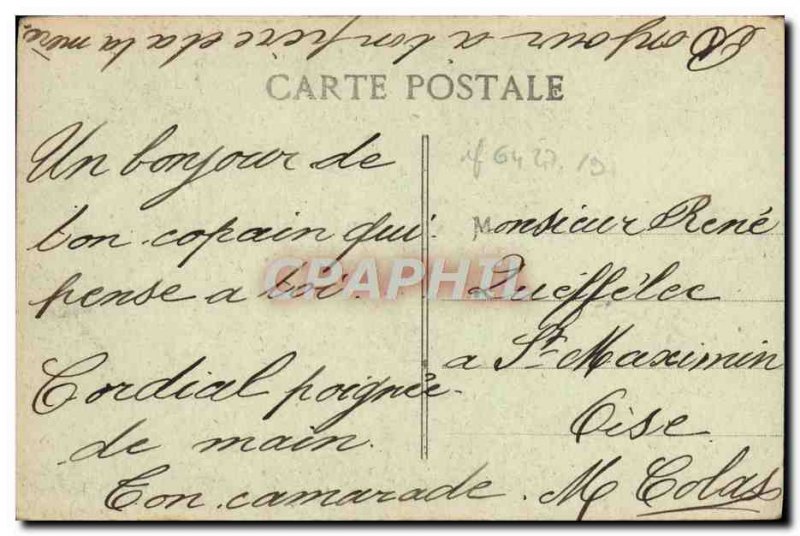 Bonjour a ton frère et a ta mère.
CARTE POSTALE
Un bonjour de
ton copain qui
pense a toi.
Cordial poignée
de main.
Ton camarade. M Colas
Monsieur René
Queffélec
a St Maximin
Oise
CPAPHIL